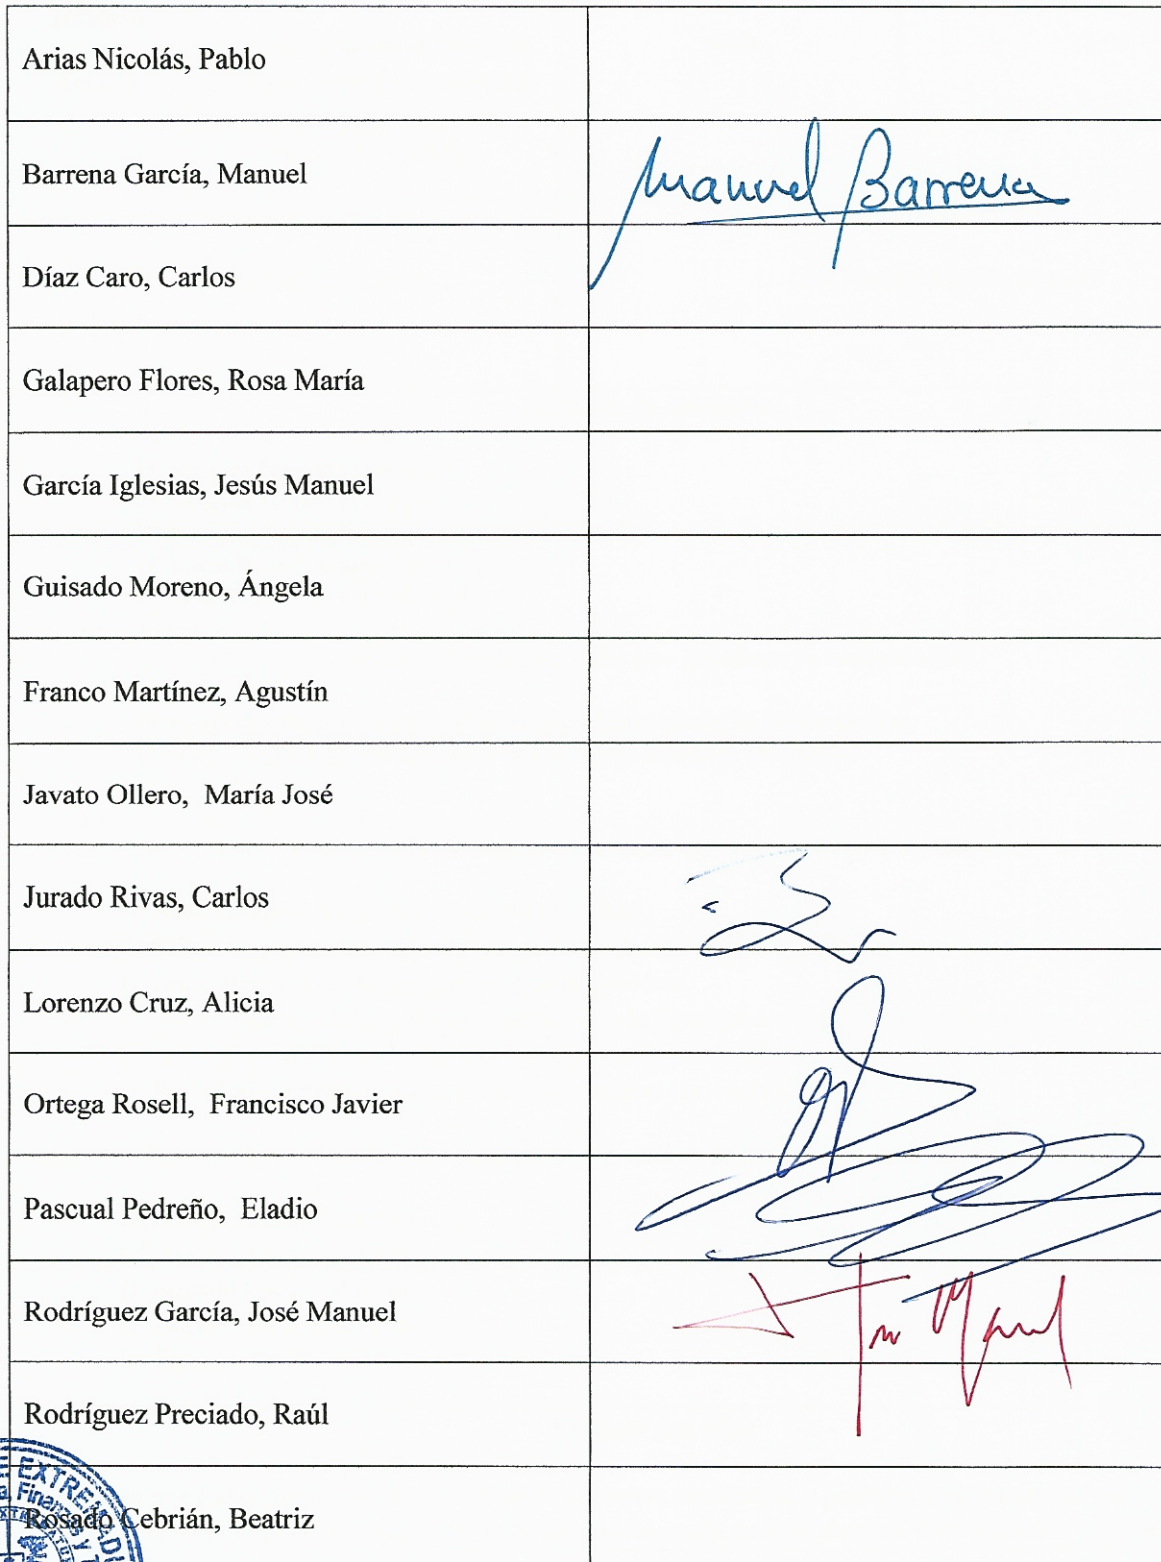 Arias Nicolás, Pablo
Barrena García, Manuel
Manuel Barrena
Díaz Caro, Carlos
Galapero Flores, Rosa María
García Iglesias, Jesús Manuel
Guisado Moreno, Ángela
Franco Martínez, Agustín
Javato Ollero, María José
Jurado Rivas, Carlos
Lorenzo Cruz, Alicia
Ortega Rosell, Francisco Javier
Pascual Pedreño, Eladio
Rodríguez García, José Manuel
Rodríguez Preciado, Raúl
Rosado Cebrián, Beatriz